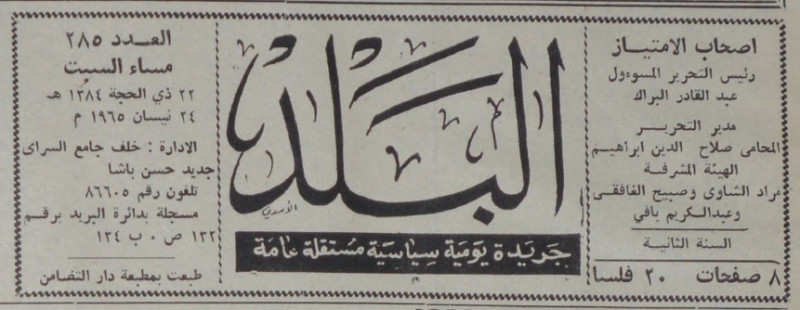 اصحاب الامتياز
رئيس التحرير المسوءول
عبد القادر البراك
مدير التحرير
المحامى صلاح الدين ابراهيم
الهيئة المشرفة
مراد الشاوى وصبيح الغافقى
وعبدالكريم بافي
السنة الثانية
٨ صفحات ٢٠ فلسا
البلد
جريدة يومية سياسية مستقلة عامة
العدد ٢٨٥
مساء السبت
٢٢ ذي الحجة ١٣٨٤ هـ
٢٤ نيسان ١٩٦٥ م
الادارة : خلف جامع السراى
جديد حسن باشا
تلفون رقم ٨٦٦٠٥
مسجلة بدائرة البريد برقم
١٢٢ ص ٠ ب ١٣٤
طبعت بمطبعة دار التضامن